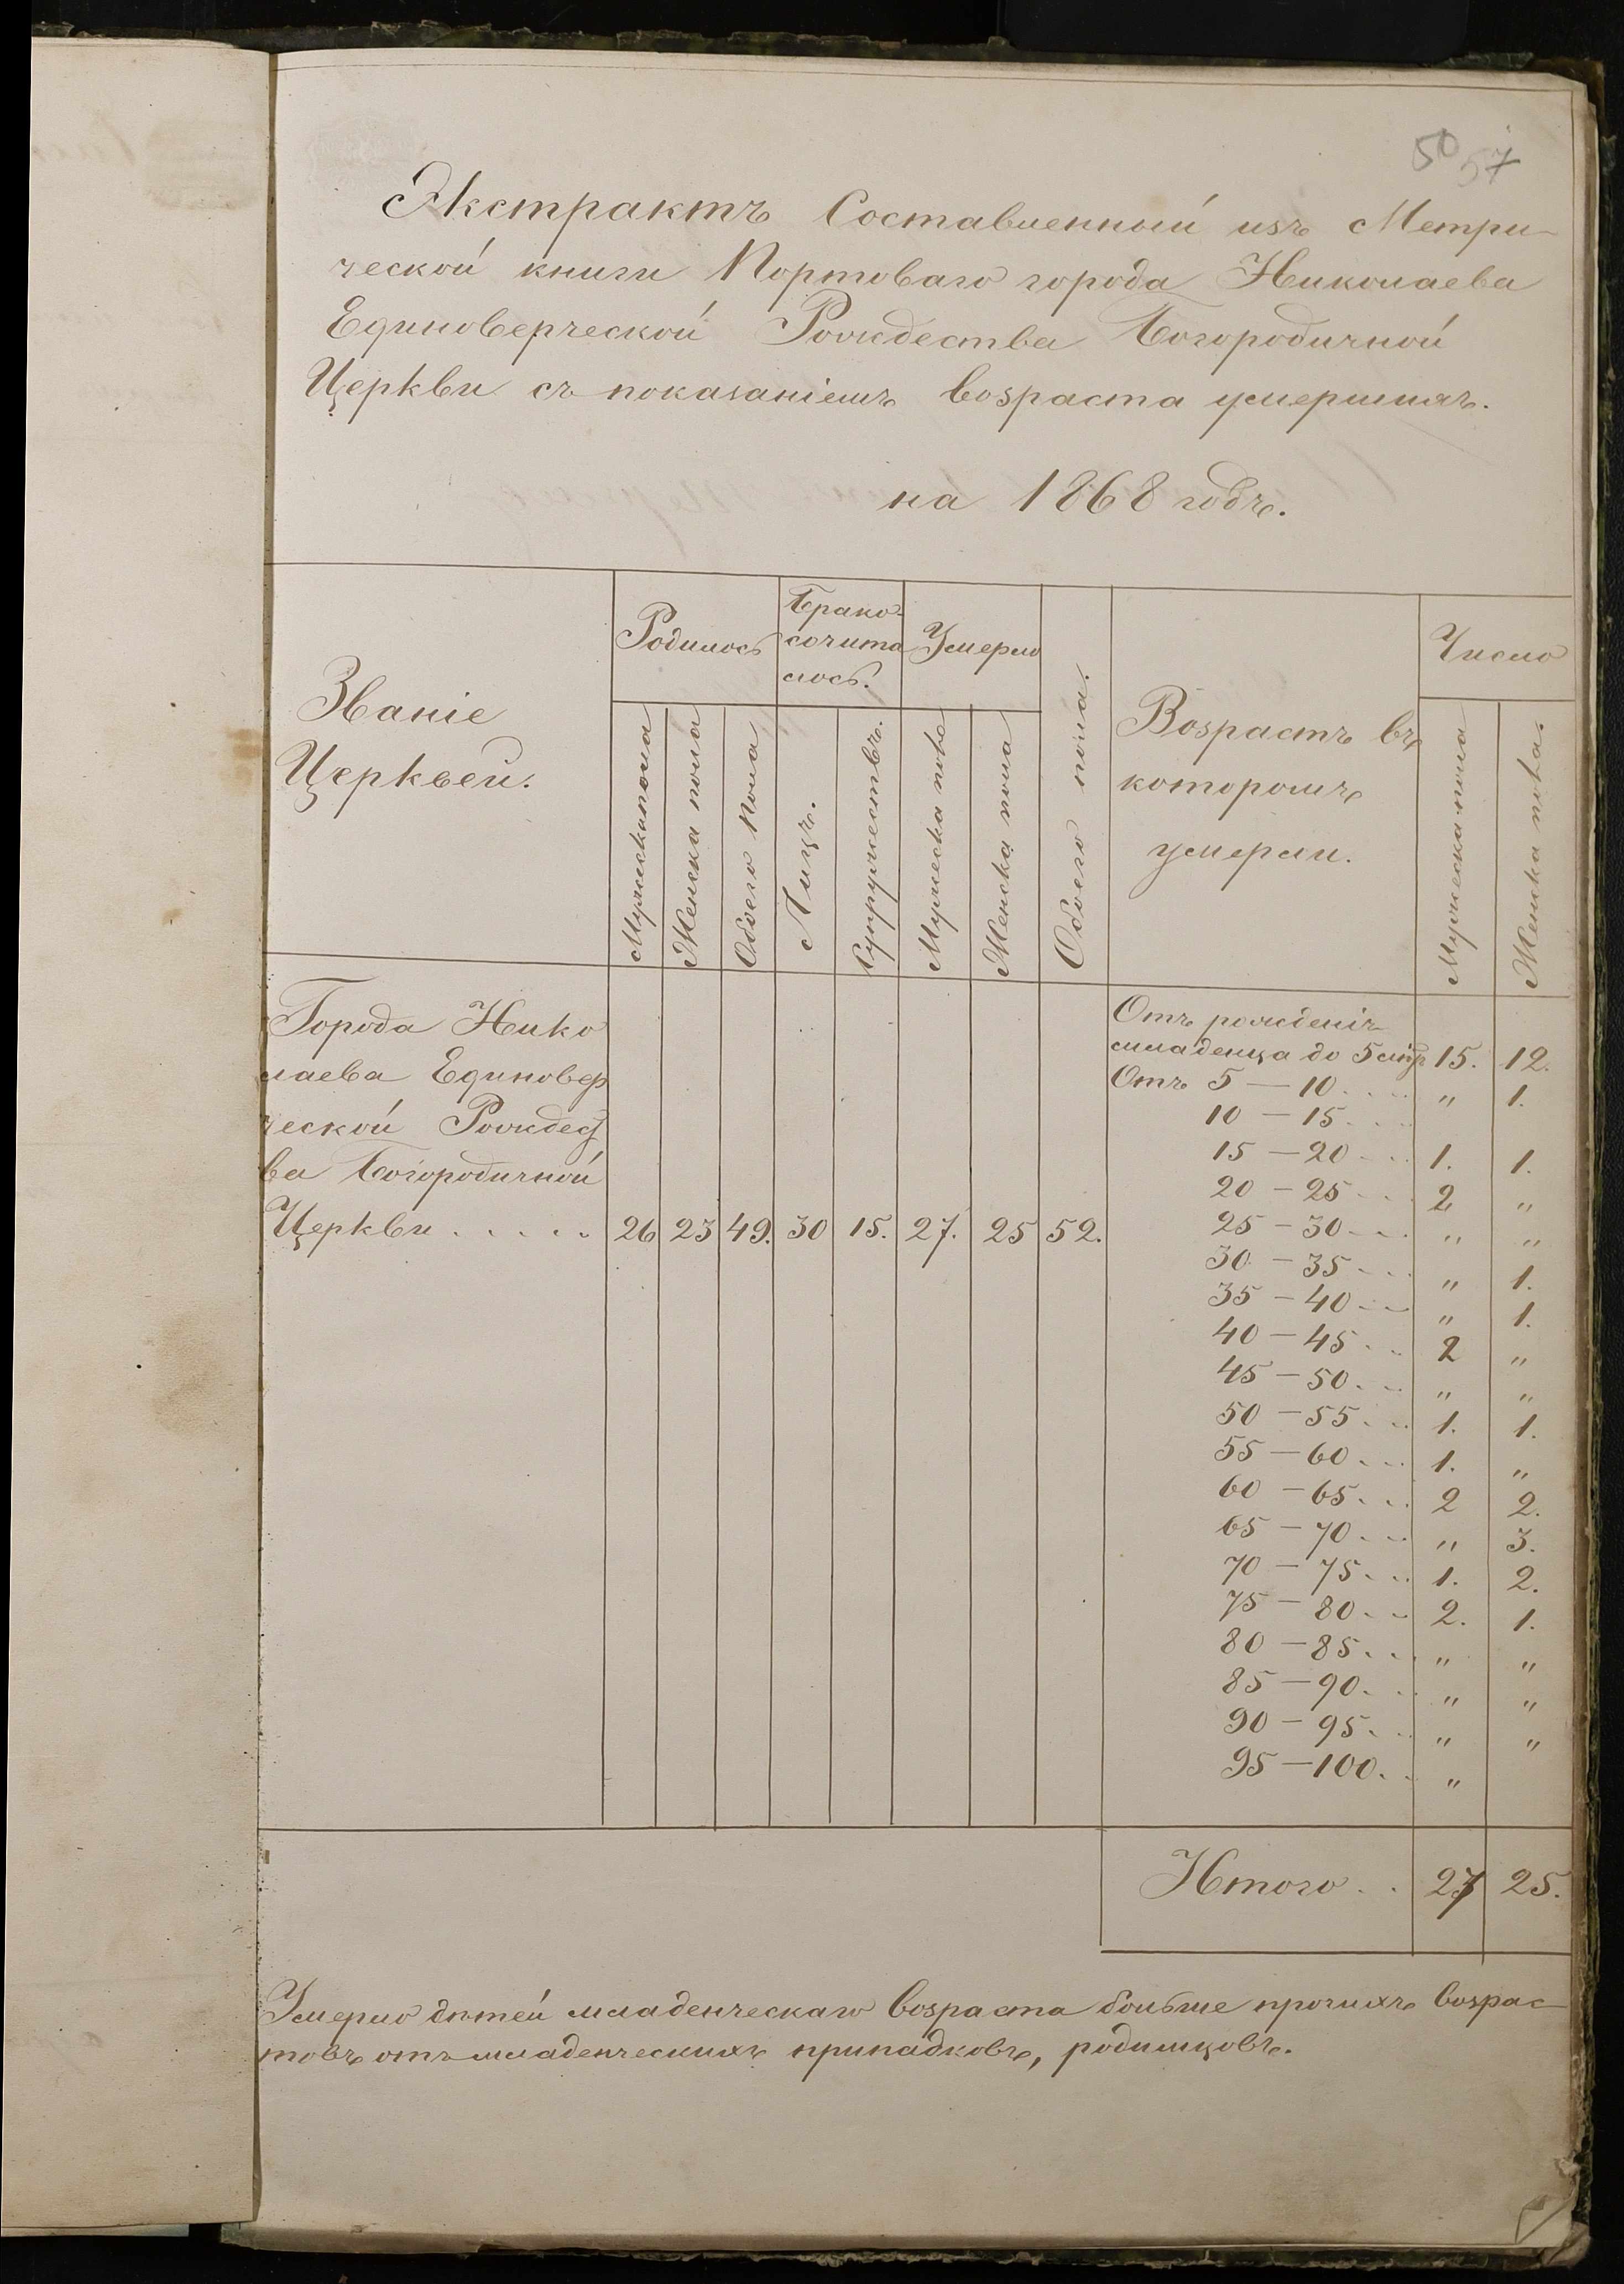 50 57
Экстрактъ Составленный изъ Метри-
ческой книги Портоваго города Николаева
Единоверческой Рождества Богородичной
Церкви съ показаніемъ возраста умершихъ.
на 1868 годъ.
Званіе
Церквей.
Родилось
Мужеска пола
Женска пола
Обоего пола
Брако-
сочита
лось.
Лицъ.
Супружествъ.
Умерло
Мужеска пола
Женска пола
Обоего пола.
Возрастъ въ
которомъ
умерли.
Число
Мужеска пола
Женска пола.
Города Нико
лаева Единовер
ческой Рождест
ва Богородичной
Церкви . . . . . 26 23 49. 30 15. 27. 25 52.
Отъ рожденія
младенца до 5 15. 12.
Отъ 5 — 10 . . . . " 1.
10 — 15 . . .
15 — 20 . . . 1. 1.
20 — 25 . . . 2 "
25 — 30 . . . " "
30 — 35 . . . " 1.
35 — 40 . . . " 1.
40 — 45 . . . 2 "
45 — 50 . . . " "
50 — 55 . . . 1. 1.
55 — 60 . . . 1. "
60 — 65 . . . 2 2.
65 — 70 . . . " 3.
70 — 75 . . . 1. 2.
75 — 80 . . . 2. 1.
80 — 85 . . . " "
85 — 90 . . . " "
90 — 95 . . . " "
95 — 100 . . "
Итого . . 27 25.
Умерло дѣтей младенческаго возраста больше прочихъ возрас-
товъ отъ младенческихъ припадковъ, родимцовъ.